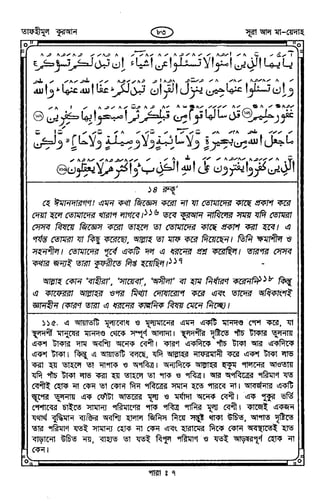 তাফহীমুল কুরআন
৮৩
সূরা আল মা–য়েদাহ
يٰۤاَيُّهَا الَّذِيْنَ اٰمَنُوْا لَا تَسْـَٔلُوْا عَنْ اَشْيَآءَ اِنْ تُبْدَ لَكُمْ تَسُؤْكُمْ ۚ
وَاِنْ تَسْـَٔلُوْا عَنْهَا حِيْنَ يُنَزَّلُ الْقُرْاٰنُ تُبْدَ لَكُمْ ؕ عَفَا اللّٰهُ عَنْهَا ؕ وَاللّٰهُ
غَفُوْرٌ حَلِيْمٌ ۝ قَدْ سَاَلَهَا قَوْمٌ مِّنْ قَبْلِكُمْ ثُمَّ اَصْبَحُوْا بِهَا كٰفِرِيْنَ ۝
مَا جَعَلَ اللّٰهُ مِنْۢ بَحِيْرَةٍ وَّلَا سَآئِبَةٍ وَّلَا وَصِيْلَةٍ وَّلَا حَامٍ ۙ وَّلٰكِنَّ
الَّذِيْنَ كَفَرُوْا يَفْتَرُوْنَ عَلَى اللّٰهِ الْكَذِبَ ؕ وَاَكْثَرُهُمْ لَا يَعْقِلُوْنَ ۝
১৪ রুকূ'
হে ঈমানদারগণ! এমন কথা জিজ্ঞেস করো না যা তোমাদের কাছে প্রকাশ করে
দেয়া হলে তোমাদের খারাপ লাগবে।১১৬ তবে কুরআন নাযিলের সময় যদি তোমরা
সেসব বিষয়ে জিজ্ঞেস করো তাহলে তা তোমাদের কাছে প্রকাশ করা হবে। এ
পর্যন্ত তোমরা যা কিছু করেছো, আল্লাহ তা মাফ করে দিয়েছেন। তিনি ক্ষমাশীল ও
সহনশীল। তোমাদের পূর্বে একটি দল এ ধরনের প্রশ্ন করেছিল। তারপর সেসব
কথার জন্যই তারা কুফরীতে লিপ্ত হয়েছিল।১১৭
আল্লাহ কোন 'বাহীরা', 'সায়েবা', 'অসীলা' বা হাম নির্ধারণ করেননি১১৮ কিন্তু
এ কাফেররা আল্লাহর ওপর মিথ্যা দোষারোপ করে এবং তাদের অধিকাংশই
জ্ঞানহীন (কারণ তারা এ ধরনের কাল্পনিক বিষয় মেনে নিচ্ছে)।
১১৫. এ আয়াতটি মূল্যবোধ ও মূল্যমানের এমন একটি মানদণ্ড পেশ করে, যা
স্থূলদর্শী মানুষের মানদণ্ড থেকে সম্পূর্ণ আলাদা। স্থূলদর্শীর দৃষ্টিতে পাঁচ টাকার তুলনায়
একশ টাকার দাম অবশ্যি অনেক বেশী। কারণ একদিকে পাঁচ টাকা আর একদিকে
একশ টাকা। কিন্তু এ আয়াতটি বলছে, যদি আল্লাহর নাফরমানী করে একশ টাকা লাভ
করা হয় তাহলে তা নাপাক ও অপবিত্র। অন্যদিকে আল্লাহর হুকুম পালনের আওতায়
যদি পাঁচ টাকা লাভ করা হয় তাহলে তা পাক ও পবিত্র। আর অপবিত্রের পরিমাণ যত
বেশীই হোক না কেন তা কোন দিন পবিত্রের সমান হতে পারবে না। আবর্জনার একটি
স্তূপের তুলনায় এক ফোঁটা আতরের মূল্য ও মর্যাদা অনেক বেশী। এক পুকুর ভর্তি
পেশাবের চাইতে সামান্য পরিমাণের পাক পবিত্র পানির মূল্য বেশী। কাজেই একজন
যথার্থ বুদ্ধিমান ব্যক্তির অবশ্যি হালাল জিনিস নিয়ে সন্তুষ্ট থাকা উচিত, আপাত দৃষ্টিতে
তার পরিমাণ যতই সামান্য হোক না কেন এবং হারামের দিকে কোন অবস্থাতেই হাত
বাড়ানো উচিত নয়, বাহ্যত তা যতই বিপুল পরিমাণ ও যতই আড়ম্বরপূর্ণ হোক না
কেন।
পারা ঃ ৭